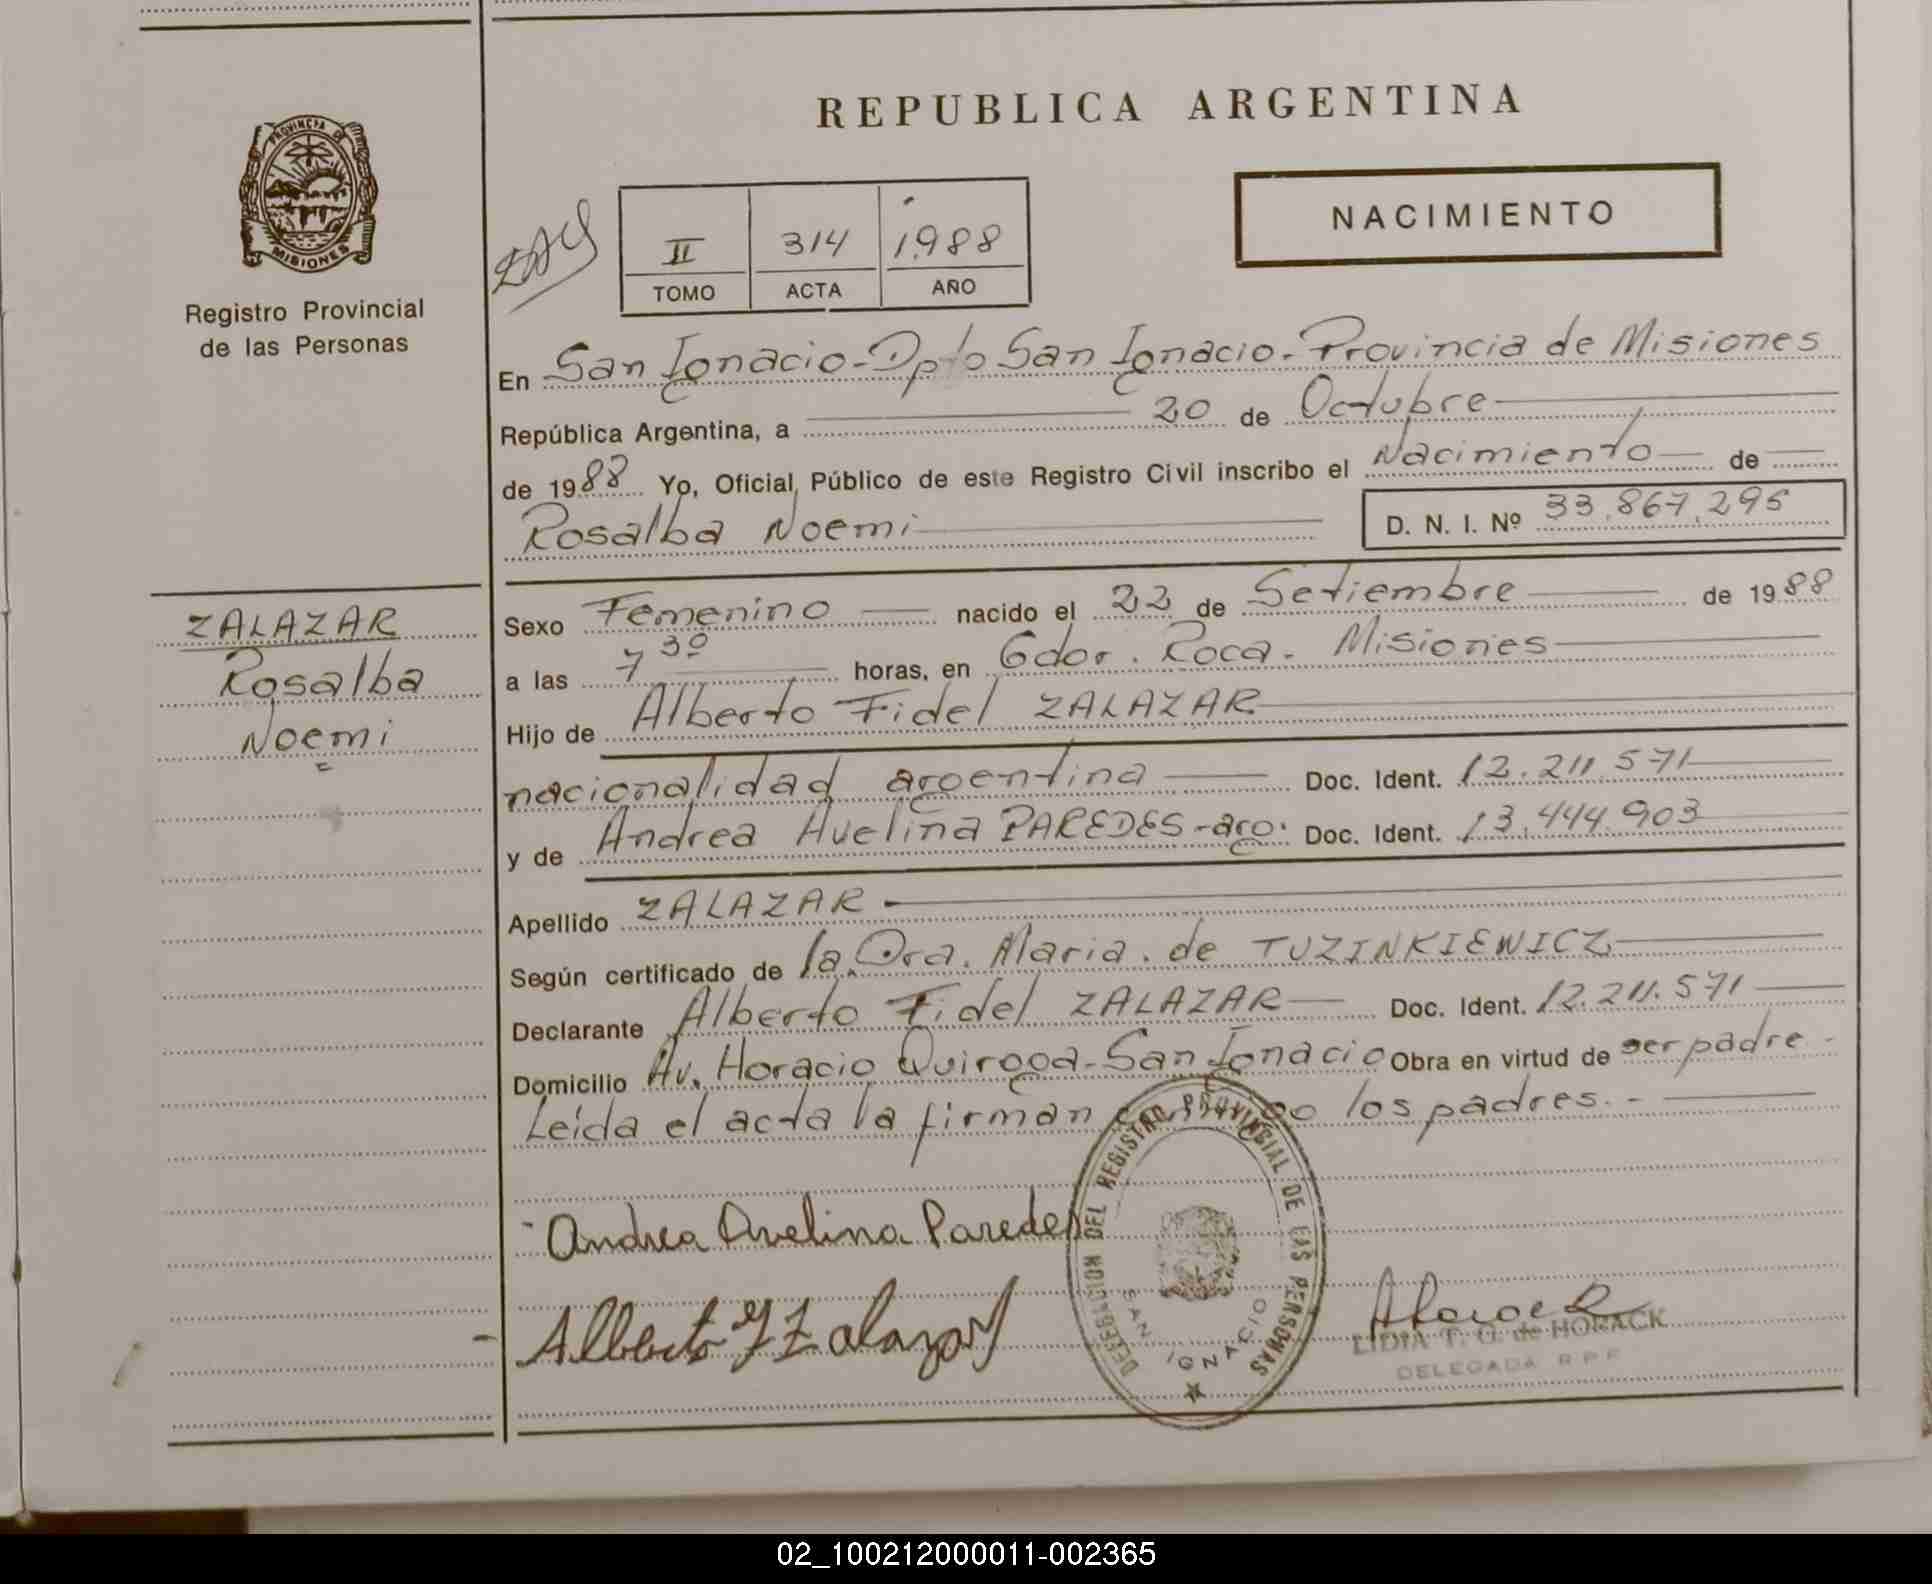 REPUBLICA ARGENTINA
PROVINCIA DE
MISIONES
Registro Provincial
de las Personas
II 314 1.988
TOMO ACTA AÑO
NACIMIENTO
En San Ignacio-Dpto San Ignacio-Provincia de Misiones
República Argentina, a 20 de Octubre
de 1988 Yo, Oficial Público de este Registro Civil inscribo el Nacimiento de
Rosalba Noemi D. N. I. Nº 33.867.295
ZALAZAR
Rosalba
Noemi
Sexo Femenino nacido el 22 de Setiembre de 1988
a las 7 30 horas, en Gdor. Roca. Misiones
Hijo de Alberto Fidel ZALAZAR
nacionalidad argentina Doc. Ident. 12.211.571
y de Andrea Avelina PAREDES-arg. Doc. Ident. 13.444.903
Apellido ZALAZAR
Según certificado de la Dra. Maria. de TUZINKIEWICZ
Declarante Alberto Fidel ZALAZAR Doc. Ident. 12.211.571
Domicilio Av. Horacio Quiroga-San Ignacio Obra en virtud de ser padre-
Leída el acta la firman conmigo los padres.-
DELEGACION DEL REGISTRO PROVINCIAL DE LAS PERSONAS
SAN IGNACIO
Andrea Avelina Paredes
Alberto F Zalazar
LIDIA T. O. de HORACK
DELEGADA R P P
02_100212000011-002365